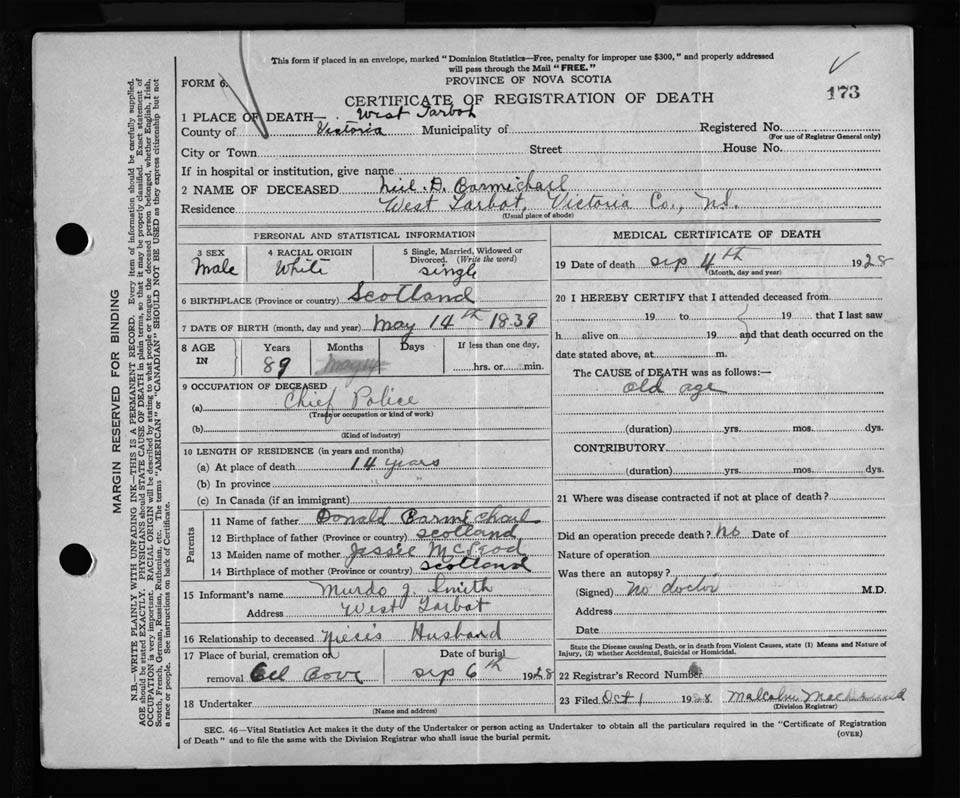 This form if placed in an envelope, marked "Dominion Statistics—Free, penalty for improper use $300," and properly addressed
will pass through the Mail "FREE."
FORM 6.
PROVINCE OF NOVA SCOTIA
173
CERTIFICATE OF REGISTRATION OF DEATH
1 PLACE OF DEATH— West Tarbot
County of Victoria Municipality of Registered No.
(For use of Registrar General only)
City or Town Street House No.
If in hospital or institution, give name
2 NAME OF DECEASED Neil. D. Carmichael
Residence West Tarbot, Victoria Co., N.S.
(Usual place of abode)
PERSONAL AND STATISTICAL INFORMATION
3 SEX 4 RACIAL ORIGIN 5 Single, Married, Widowed or
Divorced. (Write the word)
Male White single
6 BIRTHPLACE (Province or country) Scotland
7 DATE OF BIRTH (month, day and year) May 14th 1839
8 AGE IN Years Months Days If less than one day,
89 hrs. or min.
9 OCCUPATION OF DECEASED
(a) Chief Police
(Trade or occupation or kind of work)
(b)
(Kind of industry)
10 LENGTH OF RESIDENCE (in years and months)
(a) At place of death 14 years
(b) In province " "
(c) In Canada (if an immigrant)
Parents
11 Name of father Donald Carmichael
12 Birthplace of father (Province or country) scotland
13 Maiden name of mother Jessie McLeod
14 Birthplace of mother (Province or country) scotland
15 Informant's name Murdo J. Smith
Address West Tarbot
16 Relationship to deceased Niece's Husband
17 Place of burial, cremation or Date of burial
removal Eel Cove sep 6th 1928
18 Undertaker
(Name and address)
MEDICAL CERTIFICATE OF DEATH
19 Date of death sep 4th 1928
(Month, day and year)
20 I HEREBY CERTIFY that I attended deceased from
19 to 19 that I last saw
h alive on 19 and that death occurred on the
date stated above, at m.
The CAUSE of DEATH was as follows:—
old age
(duration) yrs. mos. dys.
CONTRIBUTORY
(duration) yrs. mos. dys.
21 Where was disease contracted if not at place of death?
Did an operation precede death? no Date of
Nature of operation
Was there an autopsy?
(Signed) no doctor M.D.
Address
Date
State the Disease causing Death, or in death from Violent Causes, state (1) Means and Nature of
Injury, (2) whether Accidental, Suicidal or Homicidal.
22 Registrar's Record Number
23 Filed Oct 1 1928 Malcolm
(Division Registrar)
SEC. 46—Vital Statistics Act makes it the duty of the Undertaker or person acting as Undertaker to obtain all the particulars required in the "Certificate of Registration
of Death" and to file the same with the Division Registrar who shall issue the burial permit.
(OVER)
MARGIN RESERVED FOR BINDING
N.B.—WRITE PLAINLY WITH UNFADING INK—THIS IS A PERMANENT RECORD. Every item of information should be carefully supplied.
AGE should be stated EXACTLY. PHYSICIANS should STATE CAUSE OF DEATH in plain terms, so that it may be properly classified. Exact statement of
OCCUPATION is very important. RACIAL ORIGIN will be described by stating to what people or tongue the deceased person belonged, whether English, Irish,
Scotch, French, German, Russian, Ruthenian, etc. The terms "AMERICAN" or "CANADIAN" SHOULD NOT BE USED as they express citizenship but not
a race or people. See instructions on back of Certificate.